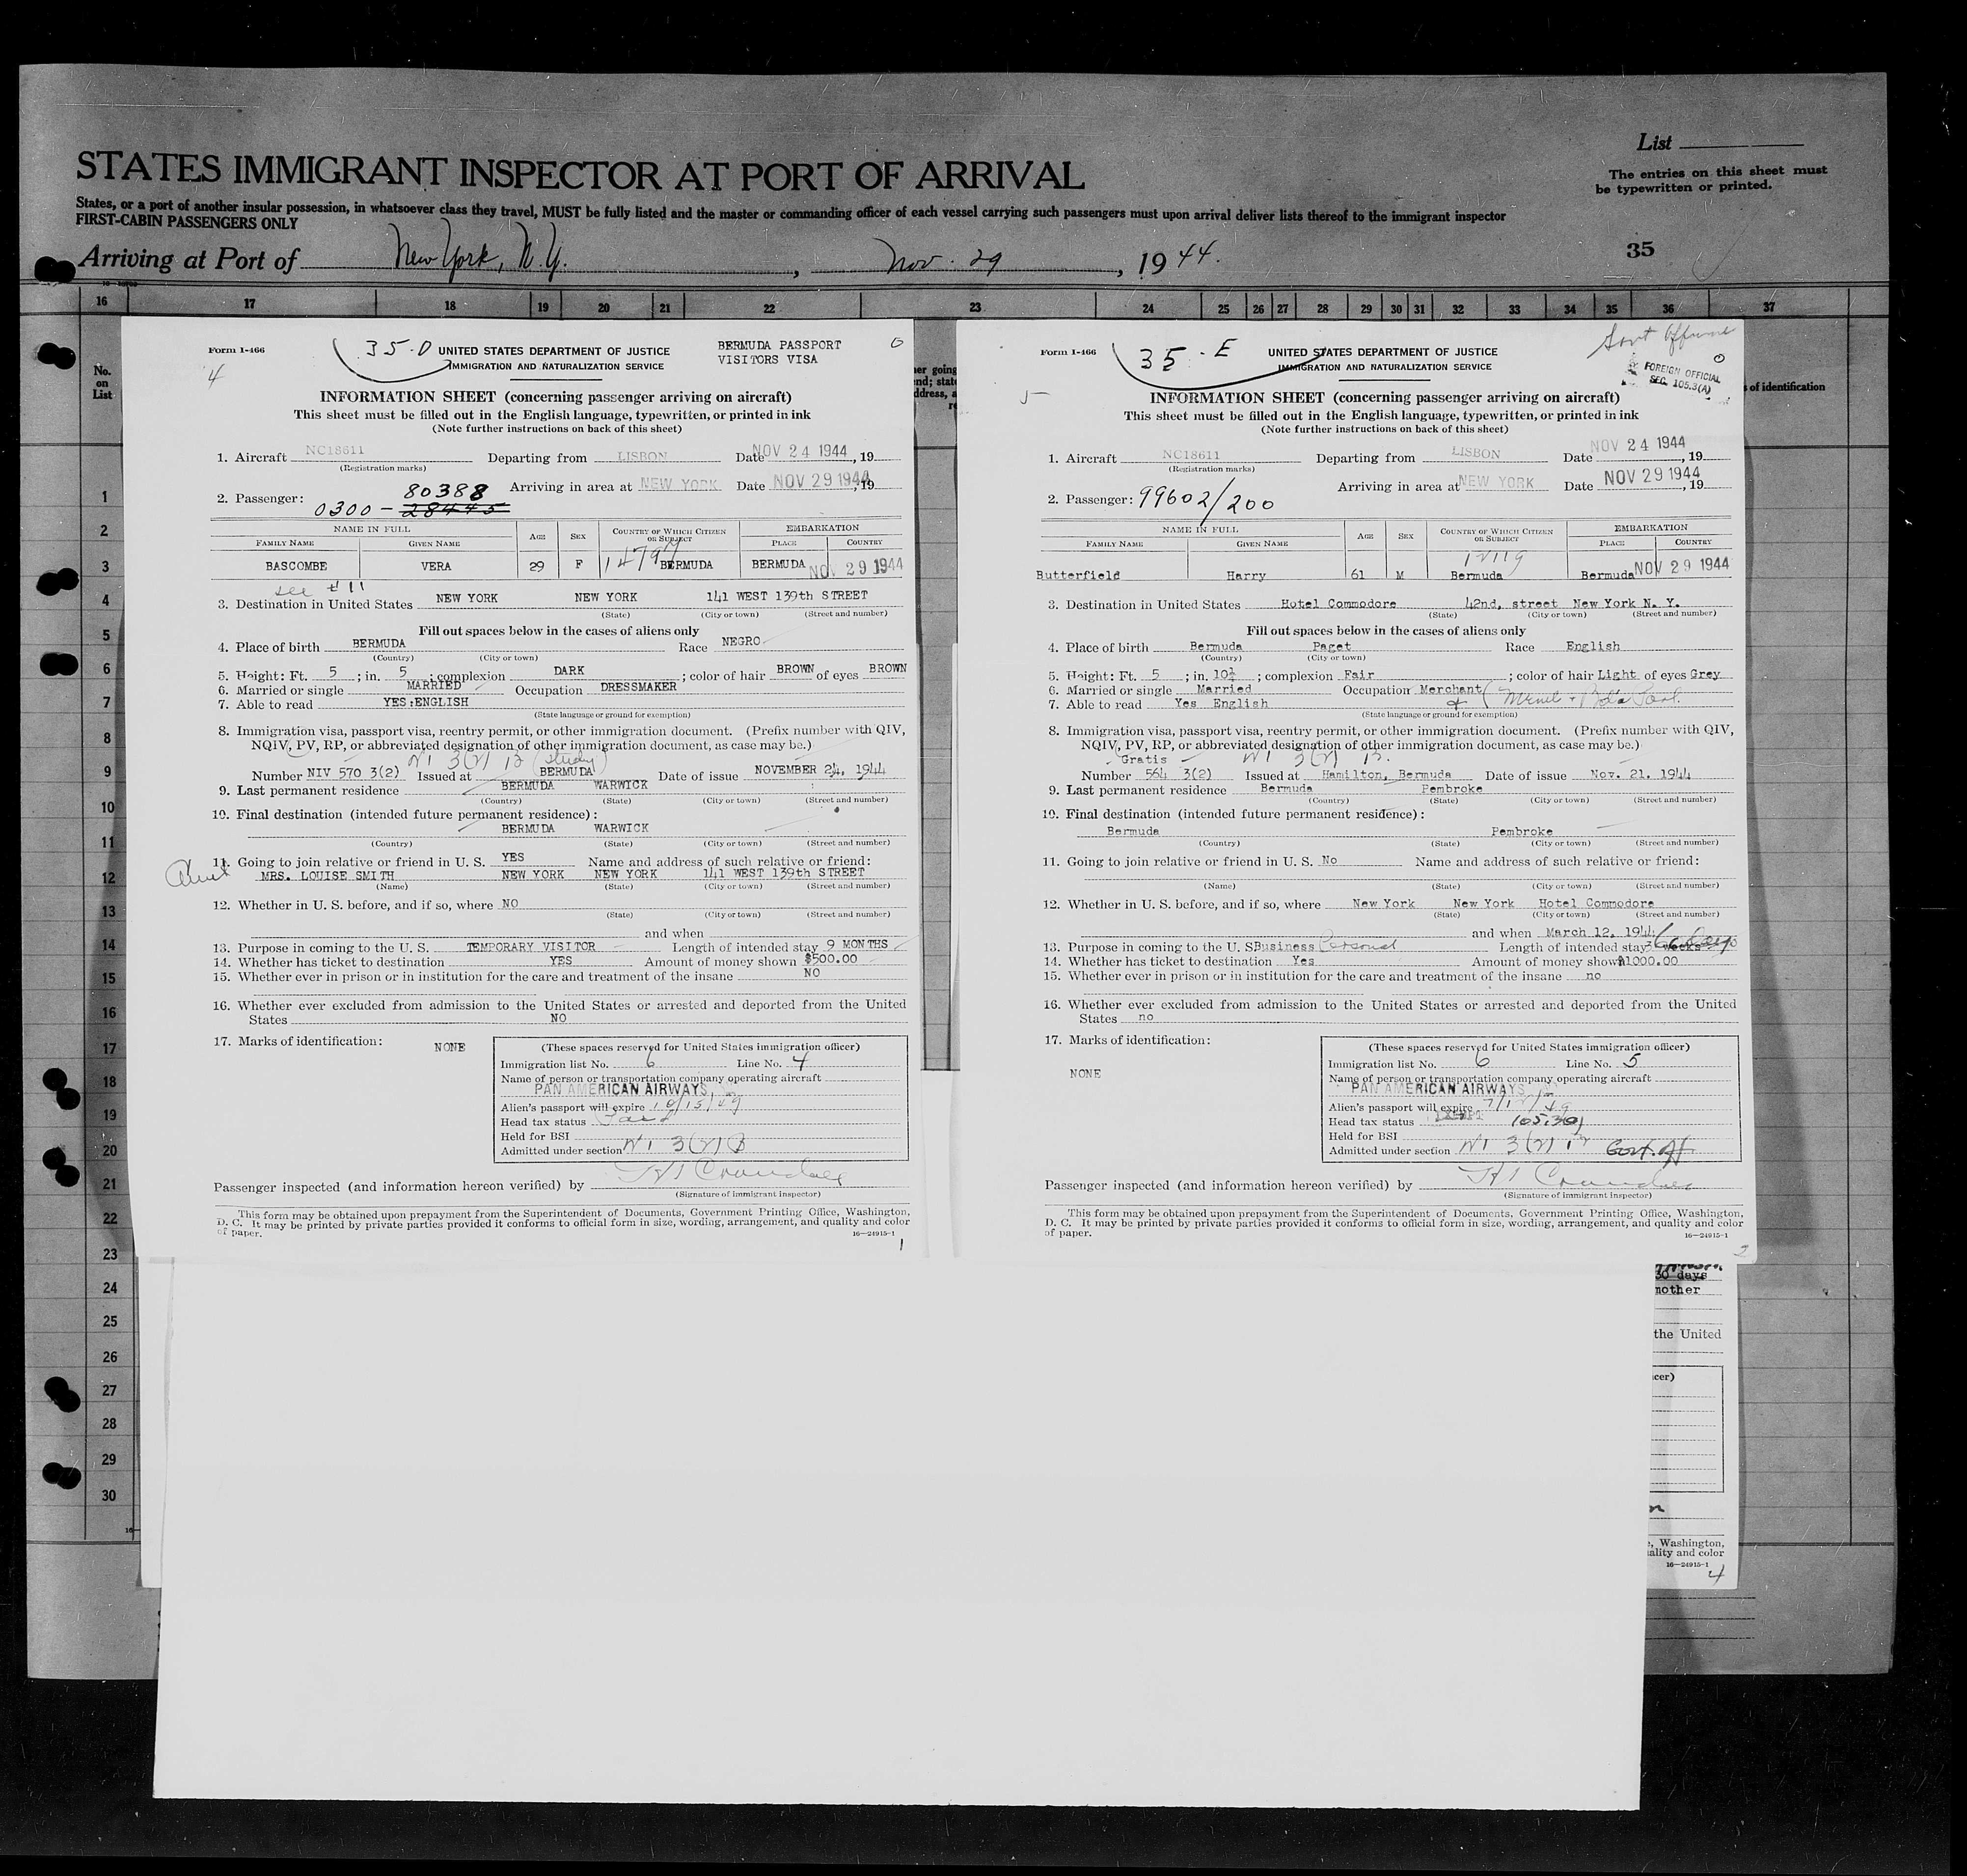 List
The entries on this sheet must
be typewritten or printed.
STATES IMMIGRANT INSPECTOR AT PORT OF ARRIVAL
States, or a port of another insular possession, in whatsoever class they travel, MUST be fully listed and the master or commanding officer of each vessel carrying such passengers must upon arrival deliver lists thereof to the immigrant inspector
FIRST-CABIN PASSENGERS ONLY
Arriving at Port of New York, N.Y. , Nov. 29 , 1944.
35
16 17 18 19 20 21 22 23 24 25 26 27 28 29 30 31 32 33 34 35 36 37
No.
on
List
1
2
3
4
5
6
7
8
9
10
11
12
13
14
15
16
17
18
19
20
21
22
23
24
25
26
27
28
29
30
Form I-466
4
35-D UNITED STATES DEPARTMENT OF JUSTICE
IMMIGRATION AND NATURALIZATION SERVICE
BERMUDA PASSPORT
VISITORS VISA
INFORMATION SHEET (concerning passenger arriving on aircraft)
This sheet must be filled out in the English language, typewritten, or printed in ink
(Note further instructions on back of this sheet)
1. Aircraft NC18611 Departing from LISBON Date NOV 24 1944, 19
(Registration marks)
80388 Arriving in area at NEW YORK Date NOV 29 1944, 19
2. Passenger: 0300 - 28445
NAME IN FULL AGE SEX COUNTRY OF WHICH CITIZEN OR SUBJECT EMBARKATION
FAMILY NAME GIVEN NAME PLACE COUNTRY
BASCOMBE VERA 29 F BERMUDA BERMUDA NOV 29 1944
see #11
3. Destination in United States NEW YORK NEW YORK 141 WEST 139th STREET
(State) (City or town) (Street and number)
Fill out spaces below in the cases of aliens only
4. Place of birth BERMUDA Race NEGRO
(Country) (City or town)
5. Height: Ft. 5 ; in. 5 ; complexion DARK ; color of hair BROWN of eyes BROWN
6. Married or single MARRIED Occupation DRESSMAKER
7. Able to read YES:ENGLISH
(State language or ground for exemption)
8. Immigration visa, passport visa, reentry permit, or other immigration document. (Prefix number with QIV,
NQIV, PV, RP, or abbreviated designation of other immigration document, as case may be.)
(study)
Number NIV 570 3(2) Issued at BERMUDA Date of issue NOVEMBER 24, 1944
9. Last permanent residence BERMUDA WARWICK
(Country) (State) (City or town) (Street and number)
10. Final destination (intended future permanent residence):
BERMUDA WARWICK
(Country) (State) (City or town) (Street and number)
11. Going to join relative or friend in U. S. YES Name and address of such relative or friend:
Aunt MRS. LOUISE SMITH NEW YORK NEW YORK 141 WEST 139th STREET
(Name) (State) (City or town) (Street and number)
12. Whether in U. S. before, and if so, where NO
(State) (City or town) (Street and number)
and when
13. Purpose in coming to the U. S. TEMPORARY VISITOR Length of intended stay 9 MONTHS
14. Whether has ticket to destination YES Amount of money shown $500.00
15. Whether ever in prison or in institution for the care and treatment of the insane NO
16. Whether ever excluded from admission to the United States or arrested and deported from the United
States NO
17. Marks of identification: NONE
(These spaces reserved for United States immigration officer)
Immigration list No. 6 Line No. 4
Name of person or transportation company operating aircraft
PAN AMERICAN AIRWAYS
Alien's passport will expire 10/15/49
Head tax status
Held for BSI
Admitted under section
Passenger inspected (and information hereon verified) by
(Signature of immigrant inspector)
This form may be obtained upon prepayment from the Superintendent of Documents, Government Printing Office, Washington,
D. C. It may be printed by private parties provided it conforms to official form in size, wording, arrangement, and quality and color
of paper.
16—24915-1
1
Form I-466
5
35-E UNITED STATES DEPARTMENT OF JUSTICE
IMMIGRATION AND NATURALIZATION SERVICE
FOREIGN OFFICIAL
SEC. 105.3(A)
of identification
INFORMATION SHEET (concerning passenger arriving on aircraft)
This sheet must be filled out in the English language, typewritten, or printed in ink
(Note further instructions on back of this sheet)
1. Aircraft NC18611 Departing from LISBON Date NOV 24 1944, 19
(Registration marks)
Arriving in area at NEW YORK Date NOV 29 1944, 19
2. Passenger: 99602/200
NAME IN FULL AGE SEX COUNTRY OF WHICH CITIZEN OR SUBJECT EMBARKATION
FAMILY NAME GIVEN NAME PLACE COUNTRY
Butterfield Harry 61 M Bermuda Bermuda NOV 29 1944
3. Destination in United States Hotel Commodore 42nd, street New York N. Y.
(State) (City or town) (Street and number)
Fill out spaces below in the cases of aliens only
4. Place of birth Bermuda Paget Race English
(Country) (City or town)
5. Height: Ft. 5 ; in. 10½ ; complexion Fair ; color of hair Light of eyes Grey
6. Married or single Married Occupation Merchant
7. Able to read Yes English
(State language or ground for exemption)
8. Immigration visa, passport visa, reentry permit, or other immigration document. (Prefix number with QIV,
NQIV, PV, RP, or abbreviated designation of other immigration document, as case may be.)
Gratis
Number 564 3(2) Issued at Hamilton, Bermuda Date of issue Nov. 21. 1944
9. Last permanent residence Bermuda Pembroke
(Country) (State) (City or town) (Street and number)
10. Final destination (intended future permanent residence):
Bermuda Pembroke
(Country) (State) (City or town) (Street and number)
11. Going to join relative or friend in U. S. No Name and address of such relative or friend:
(Name) (State) (City or town) (Street and number)
12. Whether in U. S. before, and if so, where New York New York Hotel Commodore
(State) (City or town) (Street and number)
and when March 12, 1944
13. Purpose in coming to the U. S. Business Personal Length of intended stay 3 weeks
14. Whether has ticket to destination Yes Amount of money shown $1000.00
15. Whether ever in prison or in institution for the care and treatment of the insane no
16. Whether ever excluded from admission to the United States or arrested and deported from the United
States no
17. Marks of identification:
NONE
(These spaces reserved for United States immigration officer)
Immigration list No. 6 Line No. 5
Name of person or transportation company operating aircraft
PAN AMERICAN AIRWAYS
Alien's passport will expire
Head tax status EXEMPT
Held for BSI
Admitted under section
Passenger inspected (and information hereon verified) by
(Signature of immigrant inspector)
This form may be obtained upon prepayment from the Superintendent of Documents, Government Printing Office, Washington,
D. C. It may be printed by private parties provided it conforms to official form in size, wording, arrangement, and quality and color
of paper.
16—24915-1
2
30 days
mother
the United
, Washington,
ality and color
16—24915-1
4